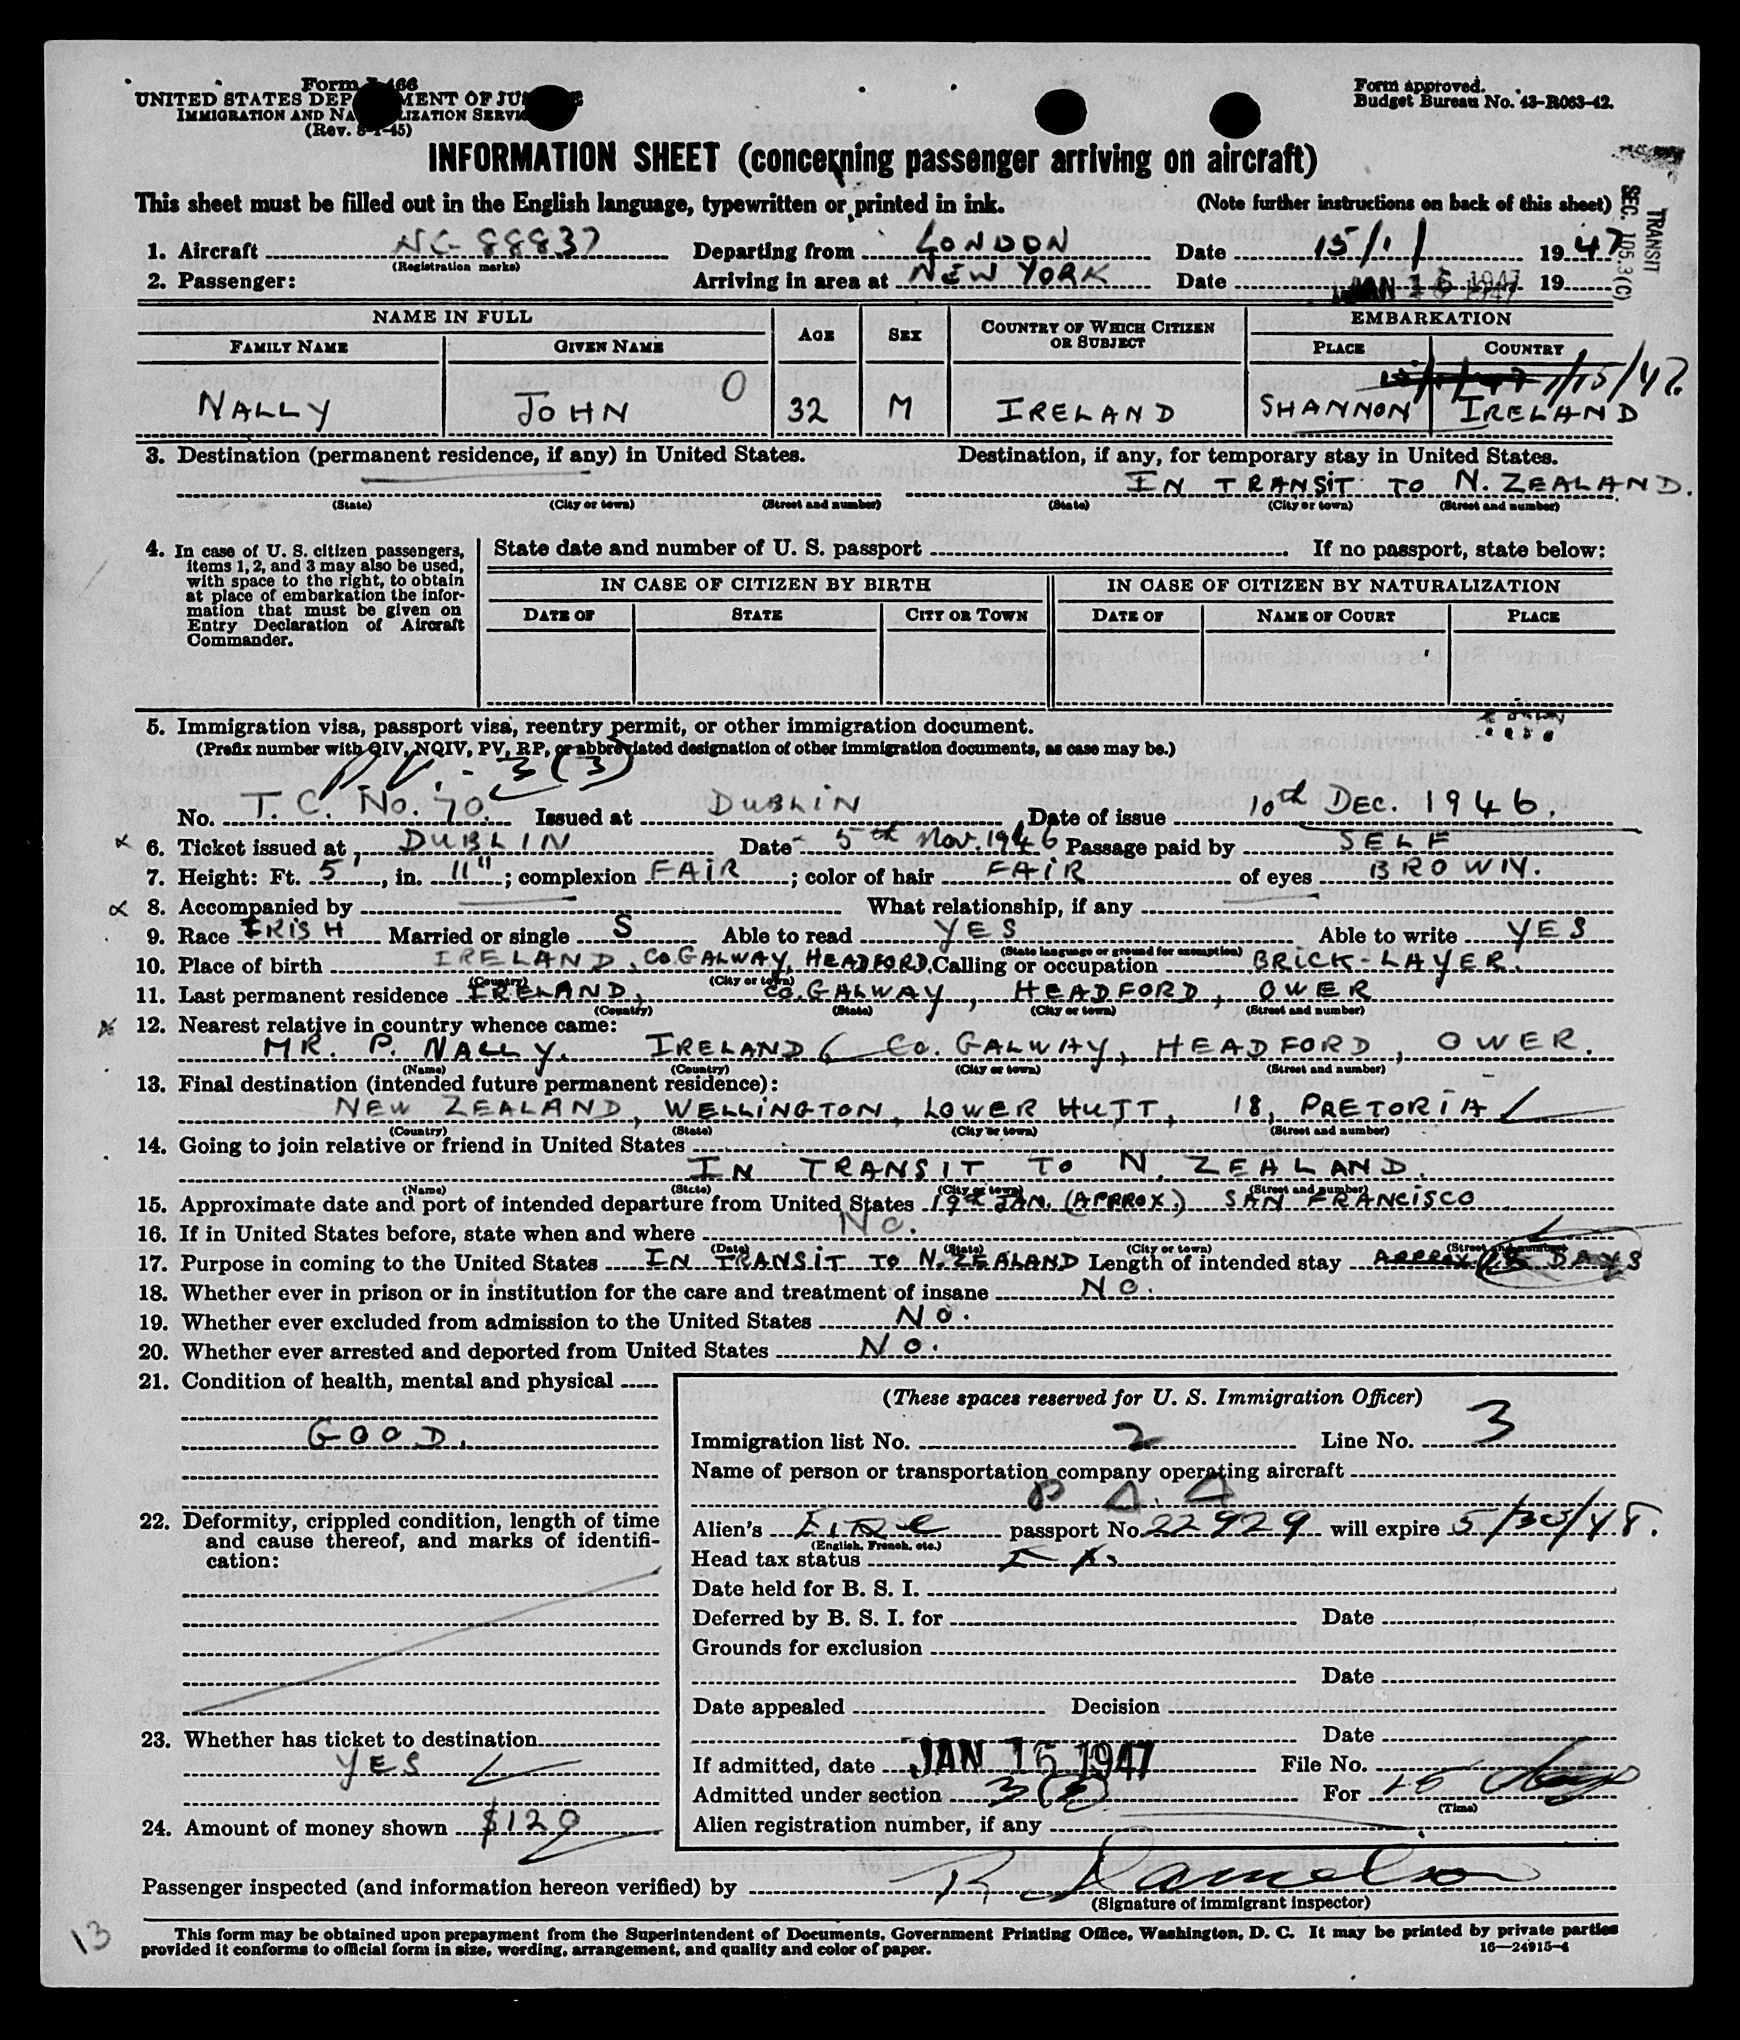 Form I-466
UNITED STATES DEPARTMENT OF JUSTICE
IMMIGRATION AND NATURALIZATION SERVICE
(Rev. 8-1-45)
Form approved.
Budget Bureau No. 43-R063-42.
INFORMATION SHEET (concerning passenger arriving on aircraft)
This sheet must be filled out in the English language, typewritten or printed in ink. (Note further instructions on back of this sheet)
TRANSIT
SEC. 105.3(C)
1. Aircraft NC 88837 Departing from LONDON Date 15/1/ 1947
(Registration marks)
2. Passenger: Arriving in area at NEW YORK Date JAN 16 1947 19
NAME IN FULL AGE SEX COUNTRY OF WHICH CITIZEN OR SUBJECT EMBARKATION
FAMILY NAME GIVEN NAME PLACE COUNTRY
1/15/47.
NALLY JOHN O 32 M IRELAND SHANNON IRELAND
3. Destination (permanent residence, if any) in United States. Destination, if any, for temporary stay in United States.
IN TRANSIT TO N. ZEALAND.
(State) (City or town) (Street and number) (State) (City or town) (Street and number)
4. In case of U. S. citizen passengers, items 1, 2, and 3 may also be used, with space to the right, to obtain at place of embarkation the information that must be given on Entry Declaration of Aircraft Commander.
State date and number of U. S. passport If no passport, state below:
IN CASE OF CITIZEN BY BIRTH IN CASE OF CITIZEN BY NATURALIZATION
DATE OF STATE CITY OR TOWN DATE OF NAME OF COURT PLACE
5. Immigration visa, passport visa, reentry permit, or other immigration document.
(Prefix number with QIV, NQIV, PV, RP, or abbreviated designation of other immigration documents, as case may be.)
P.V. - 3(3)
No. T.C. No. 70. Issued at DUBLIN Date of issue 10th DEC. 1946.
6. Ticket issued at DUBLIN Date 5th Nov. 1946 Passage paid by SELF
7. Height: Ft. 5', in. 11"; complexion FAIR; color of hair FAIR of eyes BROWN.
8. Accompanied by What relationship, if any
9. Race IRISH Married or single S Able to read YES Able to write YES
(State language or ground for exemption)
10. Place of birth IRELAND, CO. GALWAY, HEADFORD. Calling or occupation BRICK-LAYER.
(Country) (City or town)
11. Last permanent residence IRELAND, CO. GALWAY, HEADFORD, OWER
(Country) (State) (City or town) (Street and number)
12. Nearest relative in country whence came:
MR. P. NALLY. IRELAND, CO. GALWAY, HEADFORD, OWER.
(Name) (Country) (City or town) (Street and number)
13. Final destination (intended future permanent residence):
NEW ZEALAND, WELLINGTON, LOWER HUTT, 18, PRETORIA
(Country) (State) (City or town) (Street and number)
14. Going to join relative or friend in United States
IN TRANSIT TO N. ZEALAND.
(Name) (State) (City or town) (Street and number)
15. Approximate date and port of intended departure from United States 19th JAN. (APPROX.) SAN FRANCISCO
16. If in United States before, state when and where No.
(Date) (State) (City or town) (Street and number)
17. Purpose in coming to the United States IN TRANSIT TO N. ZEALAND Length of intended stay APPROX. 15 DAYS
18. Whether ever in prison or in institution for the care and treatment of insane No.
19. Whether ever excluded from admission to the United States No.
20. Whether ever arrested and deported from United States No.
21. Condition of health, mental and physical
GOOD.
22. Deformity, crippled condition, length of time and cause thereof, and marks of identification:
23. Whether has ticket to destination
YES
24. Amount of money shown $120
(These spaces reserved for U. S. Immigration Officer)
Immigration list No. 2 Line No. 3
Name of person or transportation company operating aircraft
P A. A
Alien's Eire passport No. 22929 will expire 5/30/48.
(English, French, etc.)
Head tax status Ex.
Date held for B. S. I.
Deferred by B. S. I. for Date
Grounds for exclusion
Date
Date appealed Decision
Date
If admitted, date JAN 16 1947 File No.
Admitted under section 3(3) For 15 days
(Time)
Alien registration number, if any
Passenger inspected (and information hereon verified) by
(Signature of immigrant inspector)
13
This form may be obtained upon prepayment from the Superintendent of Documents, Government Printing Office, Washington, D. C. It may be printed by private parties
provided it conforms to official form in size, wording, arrangement, and quality and color of paper.
16—24915-4